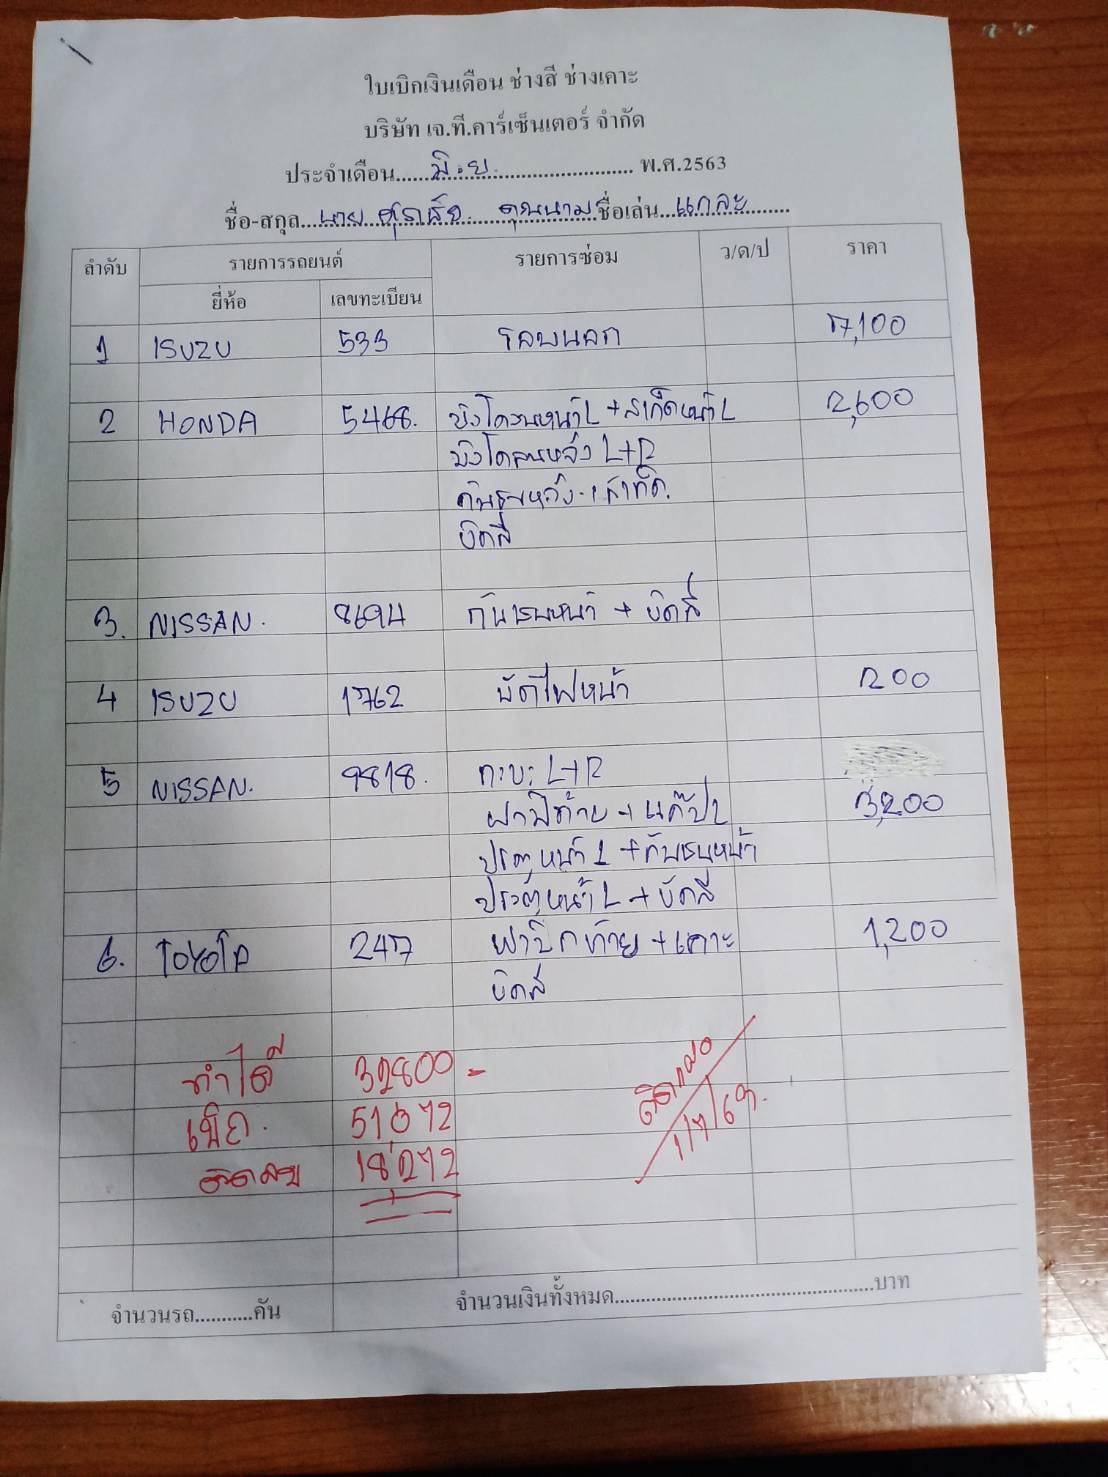 ใบเบิกเงินเดือน ช่างสี ช่างเคาะ
บริษัท เจ.ที.คาร์เซ็นเตอร์ จำกัด
ประจำเดือน.....มิ.ย............................ พ.ศ.2563
ชื่อ-สกุล...นาย ชื่อเล่น...แกละ......
ลำดับ รายการรถยนต์ รายการซ่อม ว/ด/ป ราคา
ยี่ห้อ เลขทะเบียน
1 ISUZU 533 17,100
2 HONDA 5468. บังโคลนหน้า L + สเก็ตหน้า L 2,600
บังโคลนหลัง L+R
กันชนหลัง
ขัดสี
3. NISSAN. 8694 กันชนหน้า + ขัดสี
4 ISUZU 1762 ขัดไฟหน้า 200
5 NISSAN. 9818. กะบะ L+R
3,200
ประตูหน้า L + กันชนหน้า
ประตูหน้า L + ขัดสี
6. TOYOTA 247 ท้าย + เคาะ 1,200
ขัดสี
ทำได้ 32800 -
เบิก. 51,072
ติดลบ 18,272
1/7/63.
จำนวนรถ...........คัน จำนวนเงินทั้งหมด..................................................บาท